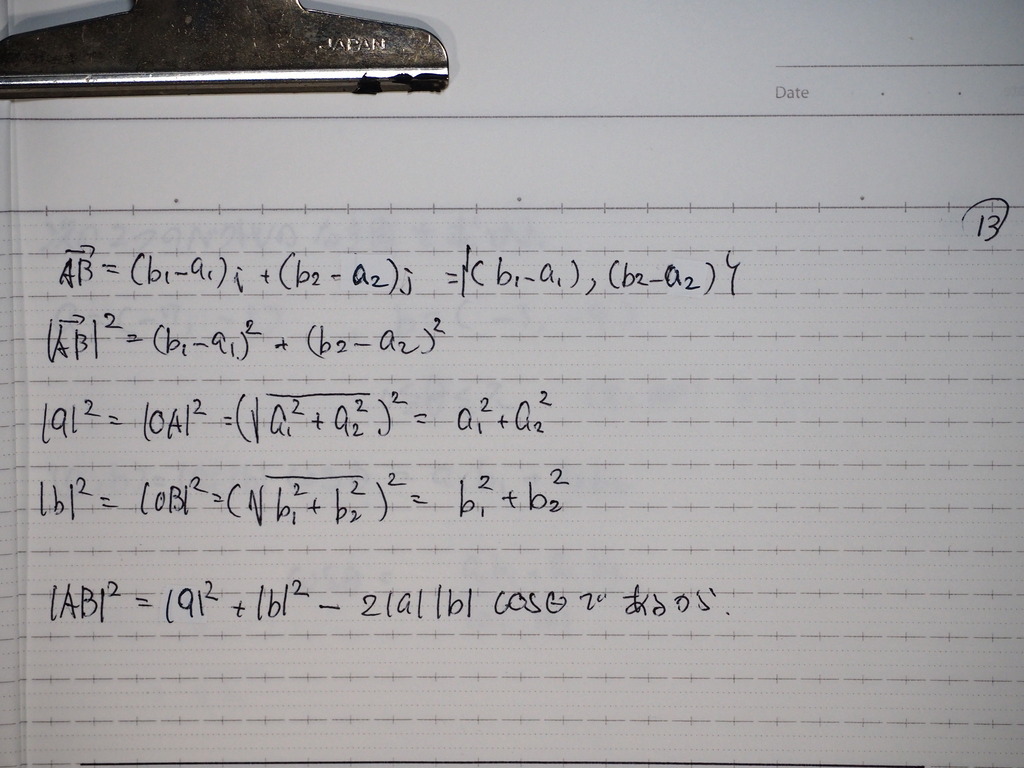 JAPAN
Date
13
AB = (b₁-a₁)i + (b₂-a₂)j = {(b₁-a₁), (b₂-a₂)}
|AB|² = (b₁-a₁)² + (b₂-a₂)²
|a|² = |OA|² = (√a₁² + a₂²)² = a₁² + a₂²
|b|² = |OB|² = (√b₁² + b₂²)² = b₁² + b₂²
|AB|² = |a|² + |b|² - 2|a||b| cosθ であるから.